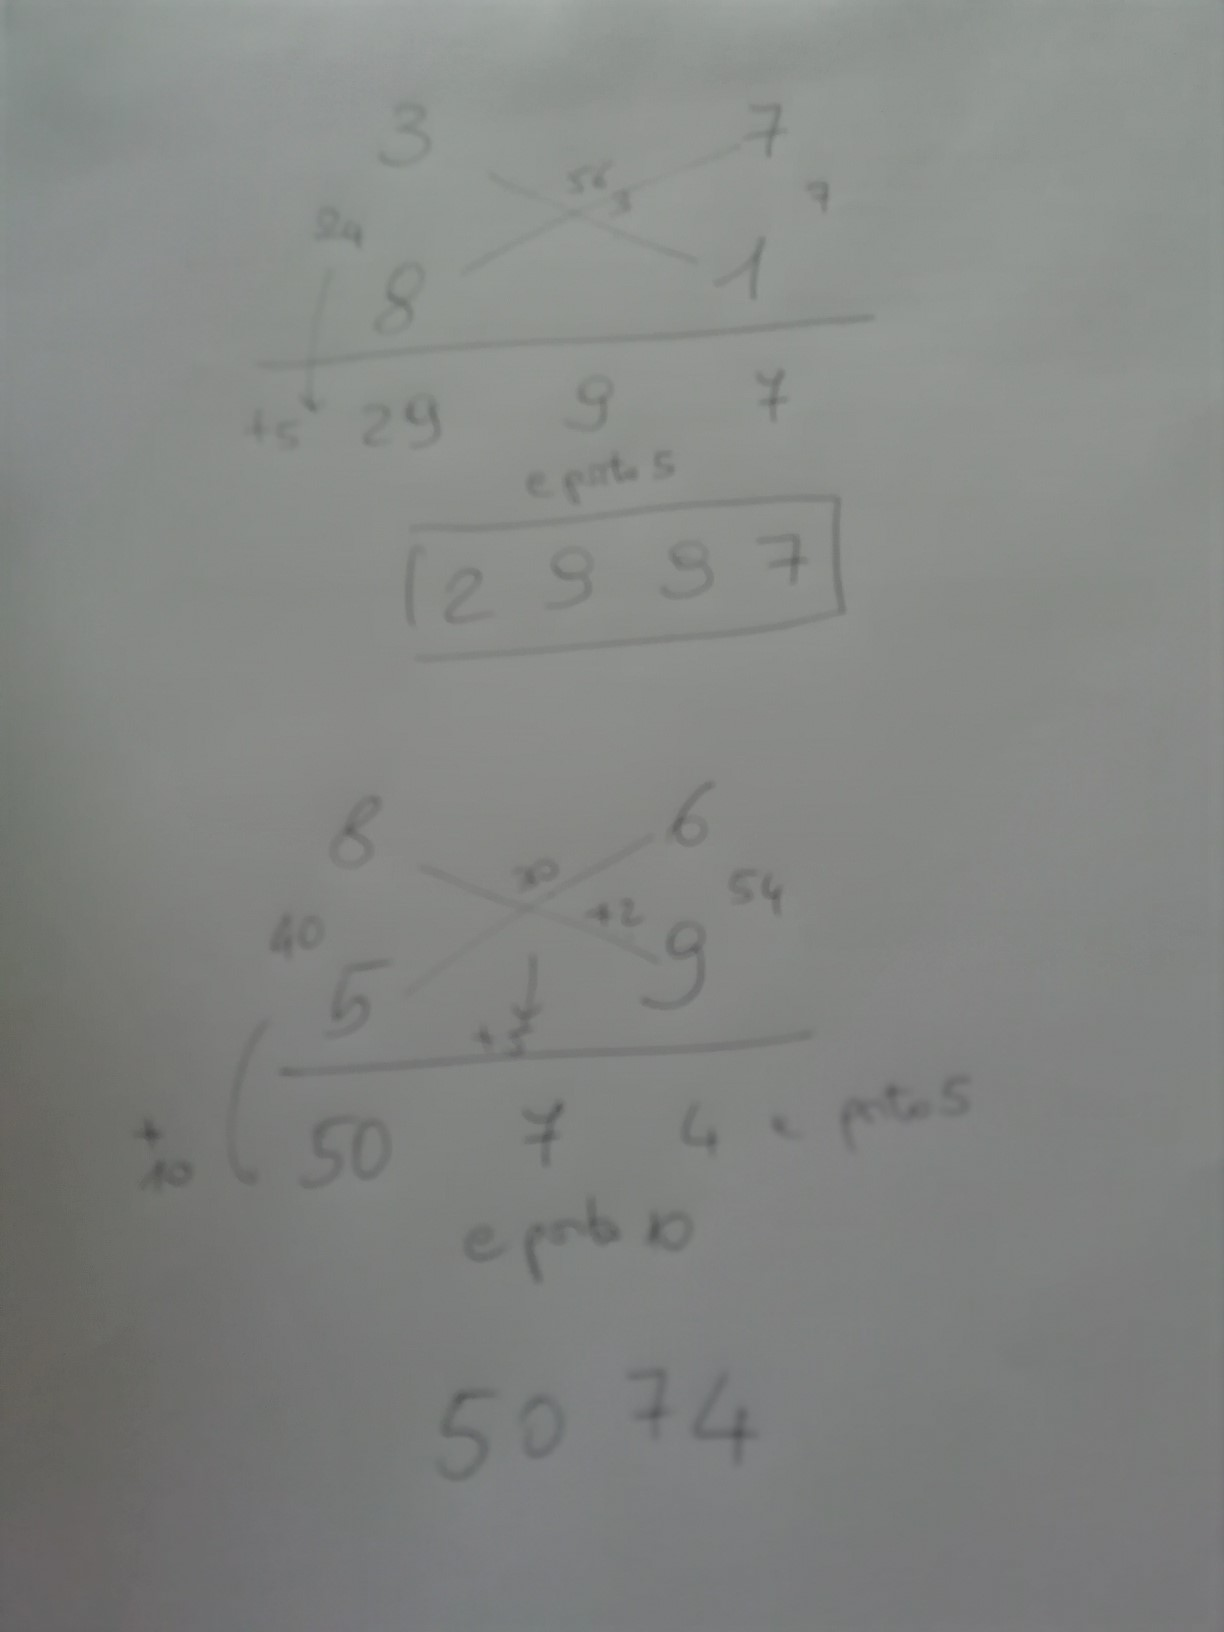 3 7
56
3
7
24
8 1
+5 29 9 7
e porto 5
2 9 9 7
8 6
54
+2
40
5 9
+5
50 7 4 e porto 5
+
10
e porto 10
50 74